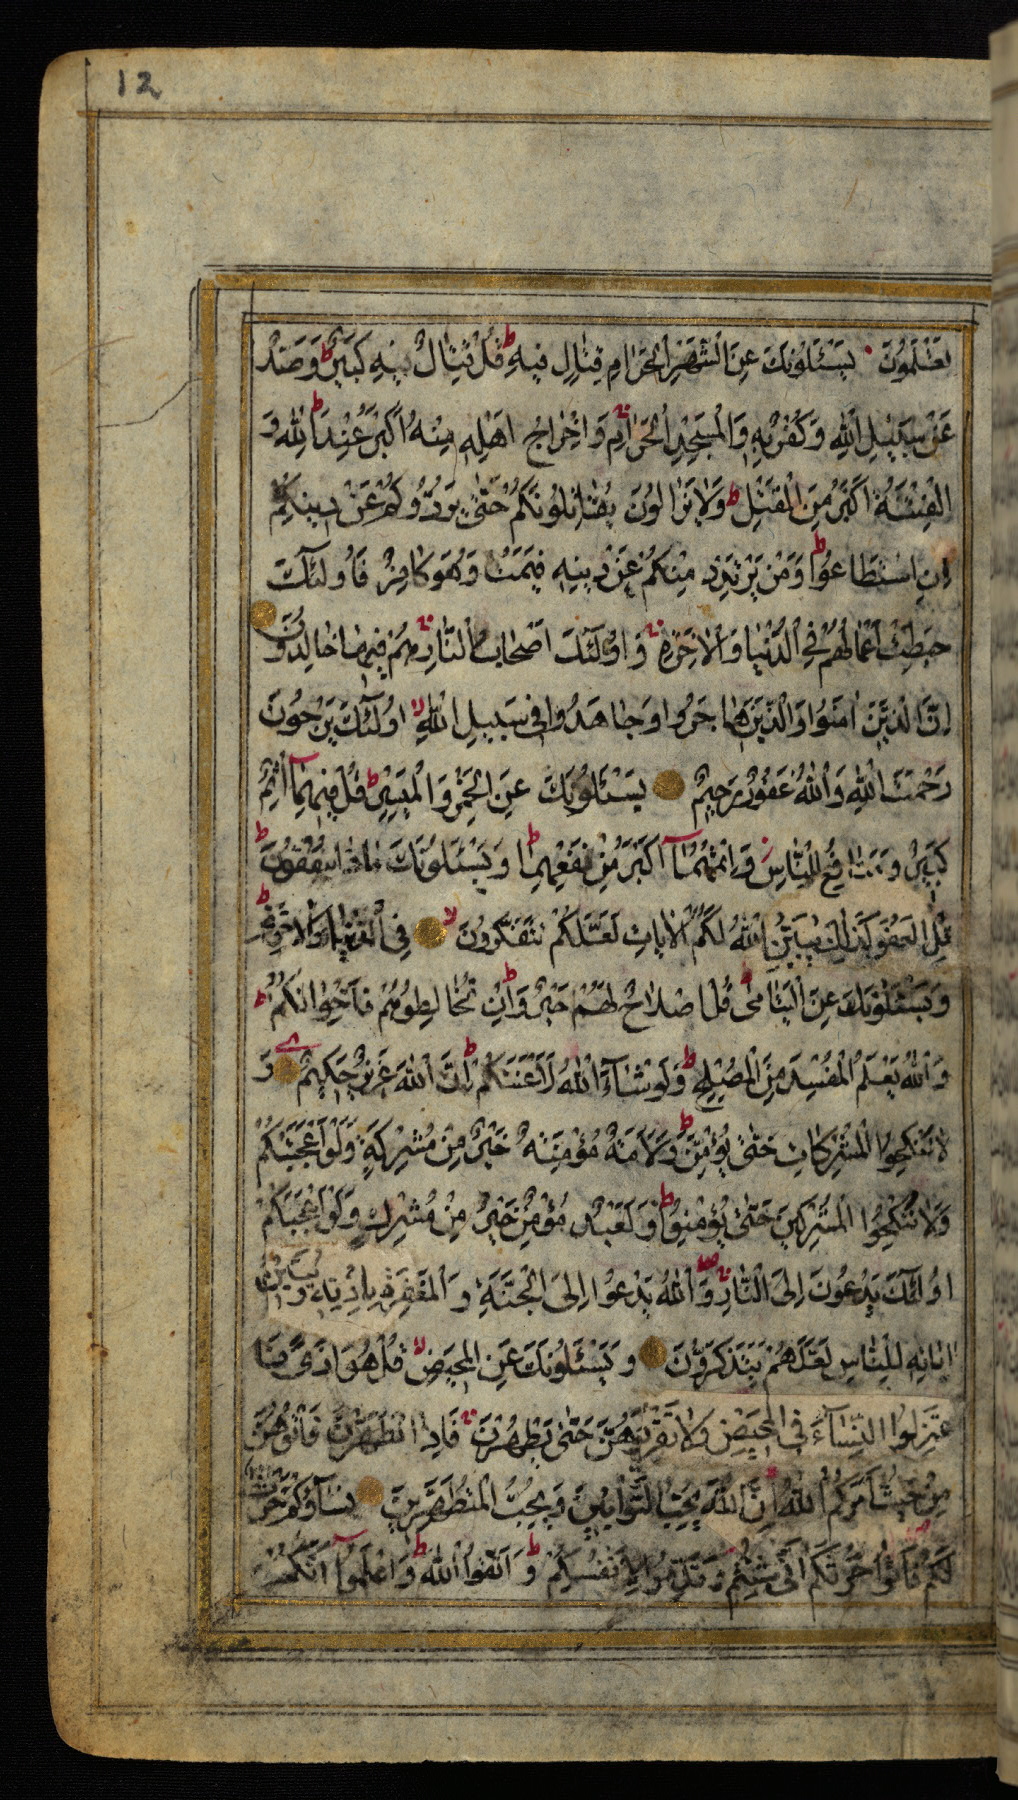 12
تَعْلَمُونَ يَسْئَلُونَكَ عَنِ الشَّهْرِ الْحَرَامِ قِتَالٍ فِيهِ ط قُلْ قِتَالٌ فِيهِ كَبِيرٌ ط وَصَدٌّ
عَنْ سَبِيلِ اللّٰهِ وَكُفْرٌ بِهِ وَالْمَسْجِدِ الْحَرَامِ وَاِخْرَاجُ اَهْلِهِ مِنْهُ اَكْبَرُ عِنْدَ اللّٰهِ ط وَ
الْفِتْنَةُ اَكْبَرُ مِنَ الْقَتْلِ ط وَلَا يَزَالُونَ يُقَاتِلُونَكُمْ حَتّٰى يَرُدُّوكُمْ عَنْ دِينِكُمْ
اِنِ اسْتَطَاعُوا ط وَمَنْ يَرْتَدِدْ مِنْكُمْ عَنْ دِينِهِ فَيَمُتْ وَهُوَ كَافِرٌ فَاُولٰئِكَ
حَبِطَتْ اَعْمَالُهُمْ فِي الدُّنْيَا وَالْاٰخِرَةِ وَاُولٰئِكَ اَصْحَابُ النَّارِ هُمْ فِيهَا خَالِدُونَ
اِنَّ الَّذِينَ اٰمَنُوا وَالَّذِينَ هَاجَرُوا وَجَاهَدُوا فِي سَبِيلِ اللّٰهِ لا اُولٰئِكَ يَرْجُونَ
رَحْمَتَ اللّٰهِ وَاللّٰهُ غَفُورٌ رَحِيمٌ يَسْئَلُونَكَ عَنِ الْخَمْرِ وَالْمَيْسِرِ ط قُلْ فِيهِمَا اِثْمٌ
كَبِيرٌ وَمَنَافِعُ لِلنَّاسِ وَاِثْمُهُمَا اَكْبَرُ مِنْ نَفْعِهِمَا ط وَيَسْئَلُونَكَ مَاذَا يُنْفِقُونَ ط
قُلِ الْعَفْوَ كَذٰلِكَ يُبَيِّنُ اللّٰهُ لَكُمُ الْاٰيَاتِ لَعَلَّكُمْ تَتَفَكَّرُونَ لا فِي الدُّنْيَا وَالْاٰخِرَةِ ط
وَيَسْئَلُونَكَ عَنِ الْيَتَامٰى قُلْ اِصْلَاحٌ لَهُمْ خَيْرٌ ط وَاِنْ تُخَالِطُوهُمْ فَاِخْوَانُكُمْ ط
وَاللّٰهُ يَعْلَمُ الْمُفْسِدَ مِنَ الْمُصْلِحِ ط وَلَوْ شَاءَ اللّٰهُ لَاَعْنَتَكُمْ ط اِنَّ اللّٰهَ عَزِيزٌ حَكِيمٌ وَ
لَا تَنْكِحُوا الْمُشْرِكَاتِ حَتّٰى يُؤْمِنَّ ط وَلَاَمَةٌ مُؤْمِنَةٌ خَيْرٌ مِنْ مُشْرِكَةٍ وَلَوْ اَعْجَبَتْكُمْ
وَلَا تُنْكِحُوا الْمُشْرِكِينَ حَتّٰى يُؤْمِنُوا ط وَلَعَبْدٌ مُؤْمِنٌ خَيْرٌ مِنْ مُشْرِكٍ وَلَوْ اَعْجَبَكُمْ
اُولٰئِكَ يَدْعُونَ اِلَى النَّارِ وَاللّٰهُ يَدْعُوا اِلَى الْجَنَّةِ وَالْمَغْفِرَةِ بِاِذْنِهِ وَيُبَيِّنُ
اٰيَاتِهِ لِلنَّاسِ لَعَلَّهُمْ يَتَذَكَّرُونَ وَيَسْئَلُونَكَ عَنِ الْمَحِيضِ لا قُلْ هُوَ اَذًى فَا
عْتَزِلُوا النِّسَاءَ فِي الْمَحِيضِ وَلَا تَقْرَبُوهُنَّ حَتّٰى يَطْهُرْنَ فَاِذَا تَطَهَّرْنَ فَأْتُوهُنَّ
مِنْ حَيْثُ اَمَرَكُمُ اللّٰهُ اِنَّ اللّٰهَ يُحِبُّ التَّوَّابِينَ وَيُحِبُّ الْمُتَطَهِّرِينَ نِسَاؤُكُمْ حَرْثٌ
لَكُمْ فَأْتُوا حَرْثَكُمْ اَنّٰى شِئْتُمْ وَقَدِّمُوا لِاَنْفُسِكُمْ ط وَاتَّقُوا اللّٰهَ ط وَاعْلَمُوا اَنَّكُمْ